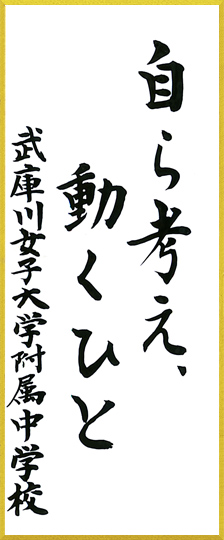 自ら考え、
動くひと
武庫川女子大学附属中学校